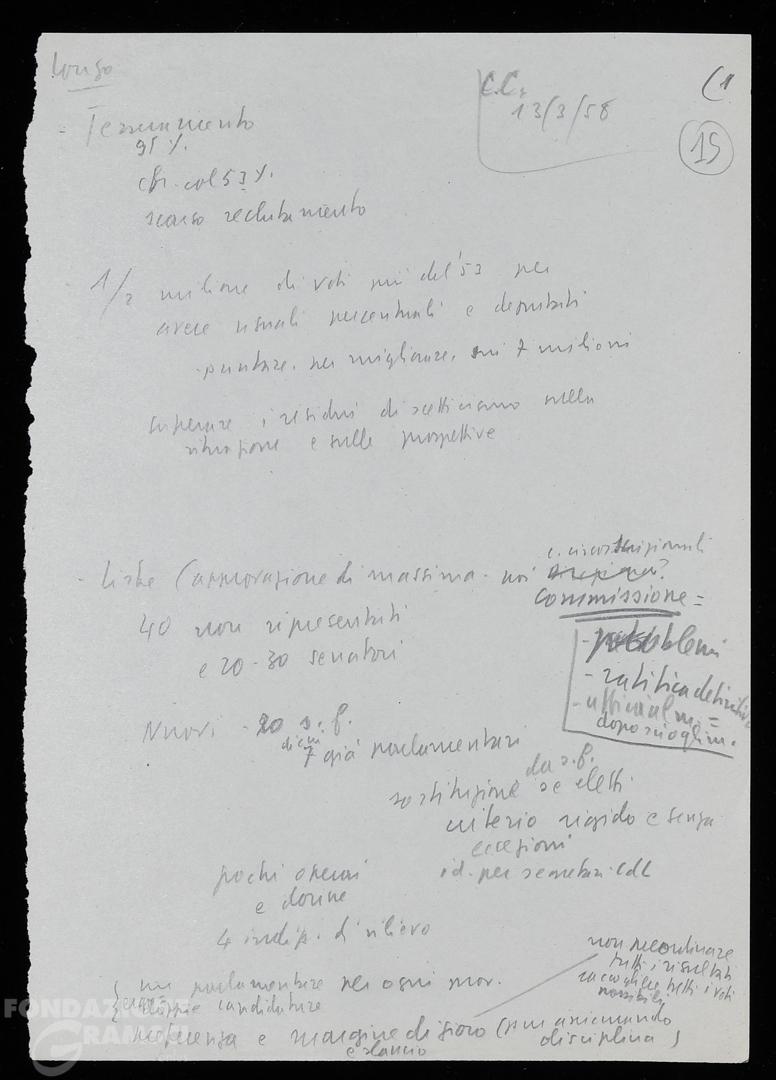 Longo
C.C.
13/3/58
(1
15
- Tesseramento
95%.
cfr. col 53%.
scarso reclutamento
1/2 milione di voti più del '53 per
avere uguali percentuali e deputati
puntare, per migliorare, sui 7 milioni
superare i residui di scetticismo sulla
situazione e sulle prospettive
- Liste (approvazione di massima - noi
c. circoscrizionali
commissione =
- problemi
- ratifica definitiva
- ufficialm. =
dopo scioglim.
40 non ripresentati
e 20-30 senatori
Nuovi - 20 s.f.
di cui
7 già parlamentari
da s.f.
sostituzione se eletti
criterio rigido e senza
eccezioni
id. per segretari CdL
pochi operai
e donne
4 indip. di rilievo
un parlamentare per ogni prov.
doppie candidature
preferenza e margine di gioco (pur assicurando
e slancio
disciplina)
non preordinare
tutti i risultati
raccogliere tutti i voti
possibili
FONDAZIONE
GRAMSCI